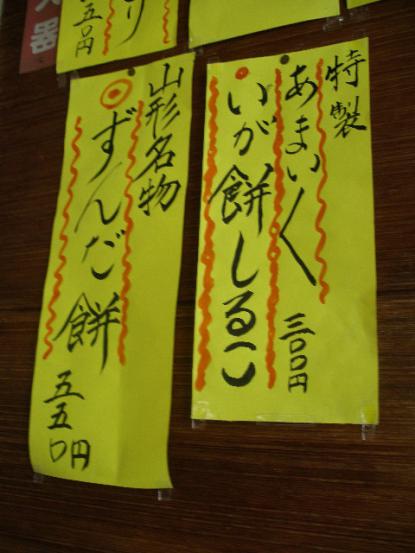 特製
あまいく
いが餅しるこ
三〇〇円
山形名物
ずんだ餅
五五〇円
り
五〇円
器